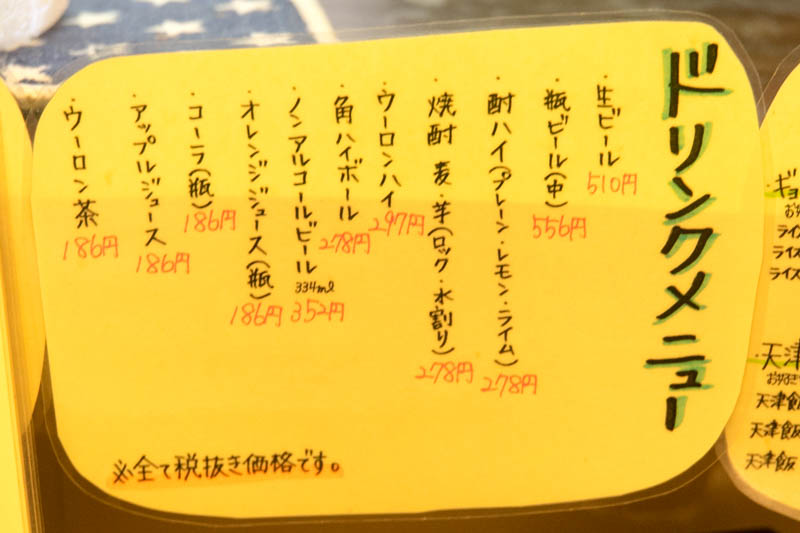 ドリンクメニュー
・生ビール 510円
・瓶ビール(中) 556円
・酎ハイ(プレーン・レモン・ライム) 278円
・焼酎 麦・芋(ロック・水割り) 278円
・ウーロンハイ 297円
・角ハイボール 278円
・ノンアルコールビール 334ml 352円
・オレンジジュース(瓶) 186円
・コーラ(瓶) 186円
・アップルジュース 186円
・ウーロン茶 186円
※全て税抜き価格です。
・ギョ
ライス
ライス
ライス
・天津
お好き
天津飯
天津飯
天津飯